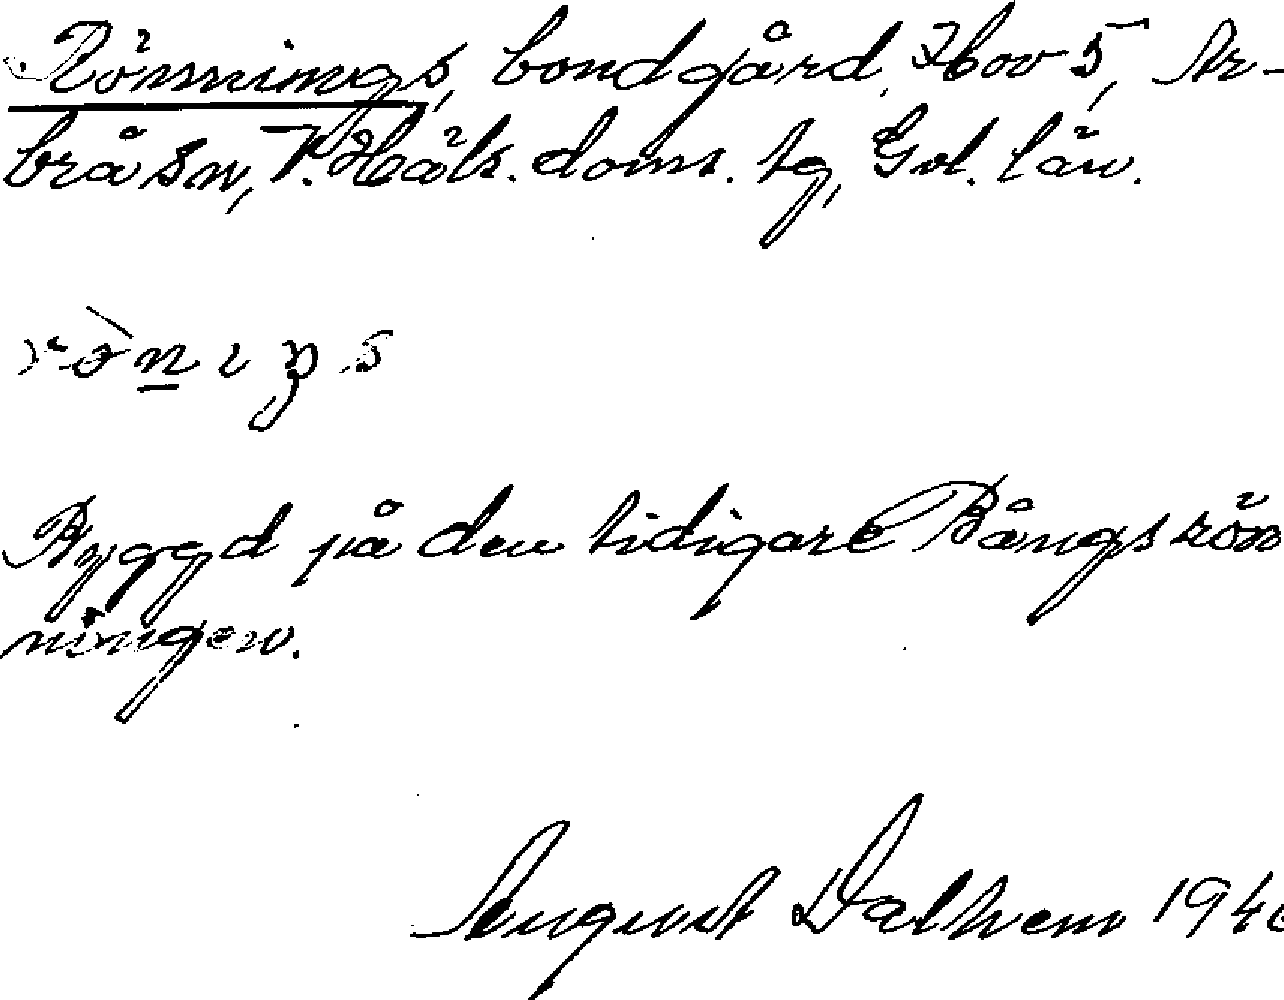 Rönnings, bondgård, Hov 5, Ar-
brå sn, V. Häls. doms. tg, Gvl. län.
Byggd på den tidigare Bångsrön
ningen.
August Dalhem